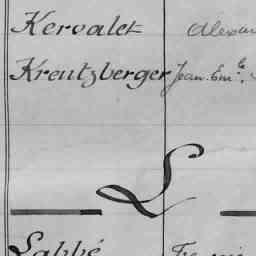 Kervalet
Kreutzberger Jean. Emle.
L
Labbé